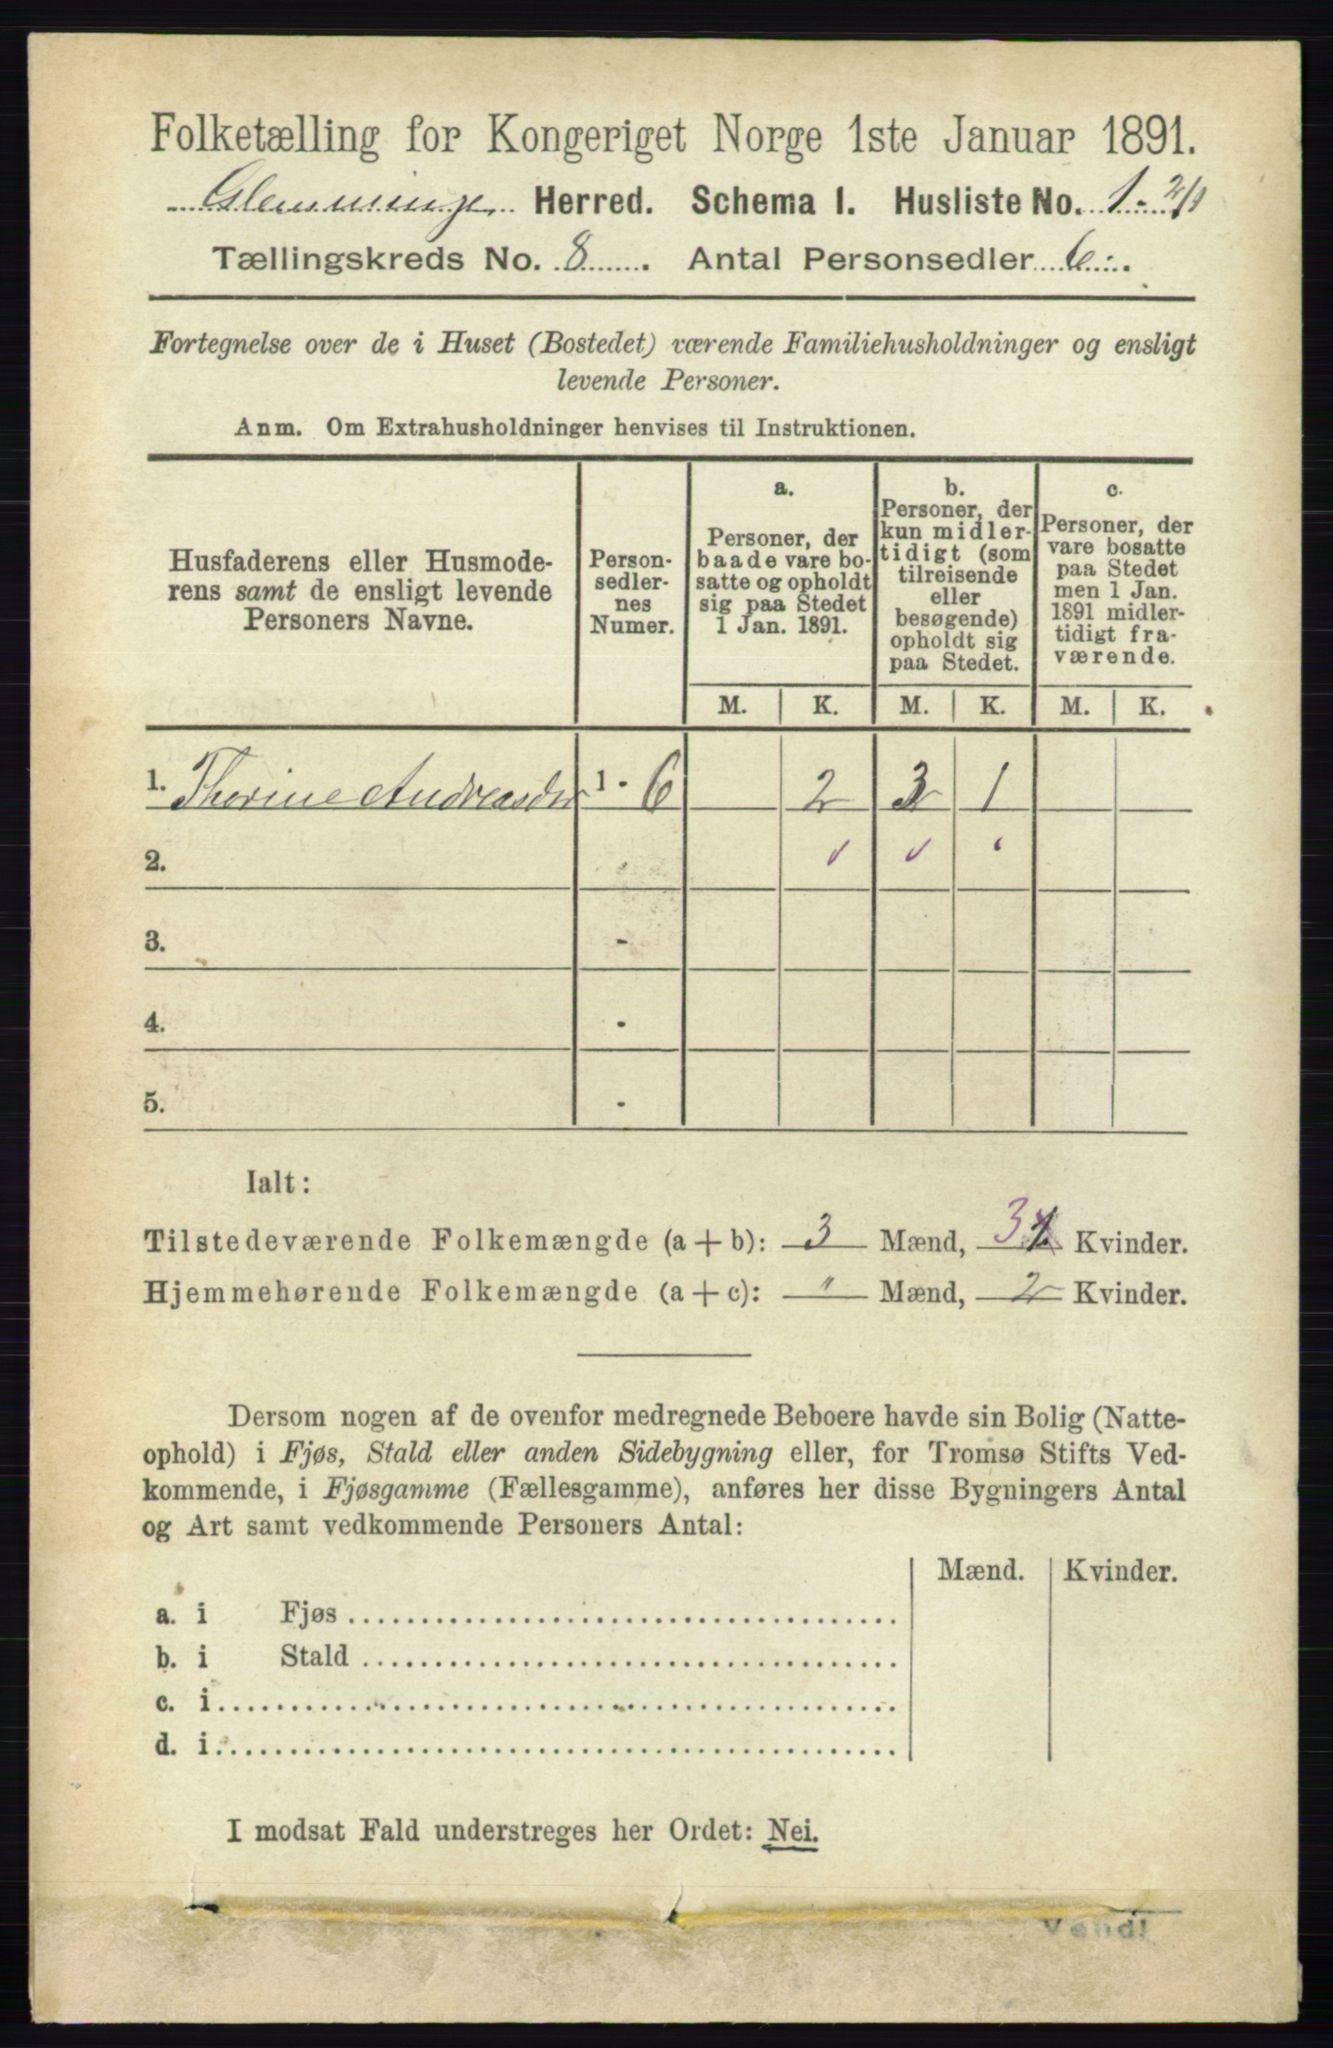 Folketælling for Kongeriget Norge 1ste Januar 1891.
Glemminge Herred. Schema I. Husliste No. 1.
Tællingskreds No. 8. Antal Personsedler 6.
Fortegnelse over de i Huset (Bostedet) værende Familiehusholdninger og ensligt
levende Personer.
Anm. Om Extrahusholdninger henvises til Instruktionen.
Husfaderens eller Husmode-
rens samt de ensligt levende
Personers Navne.
Person-
sedler-
nes
Numer.
a.
Personer, der
baade vare bo-
satte og opholdt
sig paa Stedet
1 Jan. 1891.
b.
Personer, der
kun midler-
tidigt (som
tilreisende
eller
besøgende)
opholdt sig
paa Stedet.
c.
Personer, der
vare bosatte
paa Stedet
men 1 Jan.
1891 midler-
tidigt fra-
værende.
M. K. M. K. M. K.
1. Thorine Andreasdtr 1 - 6 2 3 1
2. -
3. -
4. -
5. -
Ialt:
Tilstedeværende Folkemængde (a + b): 3 Mænd, 3 Kvinder.
Hjemmehørende Folkemængde (a + c): " Mænd, 2 Kvinder.
Dersom nogen af de ovenfor medregnede Beboere havde sin Bolig (Natte-
ophold) i Fjøs, Stald eller anden Sidebygning eller, for Tromsø Stifts Ved-
kommende, i Fjøsgamme (Fællesgamme), anføres her disse Bygningers Antal
og Art samt vedkommende Personers Antal:
Mænd. Kvinder.
a. i Fjøs
b. i Stald
c. i
d. i
I modsat Fald understreges her Ordet: Nei.
Vend!